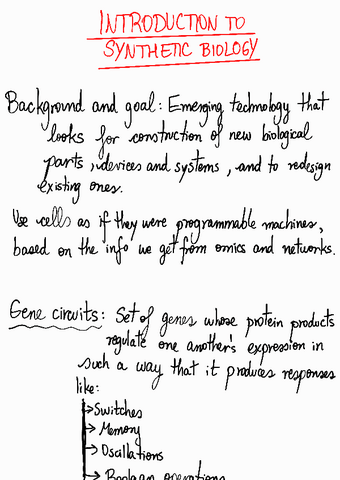 INTRODUCTION TO
SYNTHETIC BIOLOGY
Background and goal: Emerging technology that
looks for construction of new biological
parts, devices and systems, and to redesign
existing ones.
Use cells as if they were programmable machines,
based on the info we get from omics and networks.
Gene circuits: Set of genes whose protein products
regulate one another's expression in
such a way that it produces responses
like:
→ Switches
→ Memory
→ Oscillations
→ Boolean operations